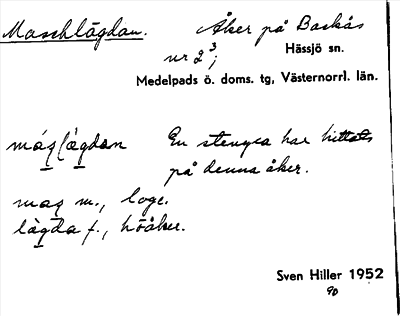 Maschlägdan. Åker på Backås
nr 2³;
Hässjö sn.
Medelpads ö. doms. tg, Västernorrl. län.
En stenyxa har hittats
på denna åker.
m., loge.
lägda f., höåker.
Sven Hiller 1952
90